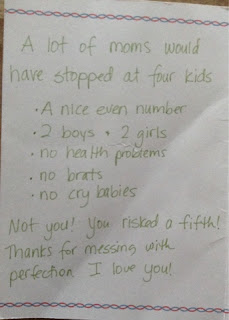 A lot of moms would
have stopped at four kids
• A nice even number
• 2 boys + 2 girls
• no health problems
• no brats
• no cry babies
Not you! You risked a fifth!
Thanks for messing with
perfection. I love you!